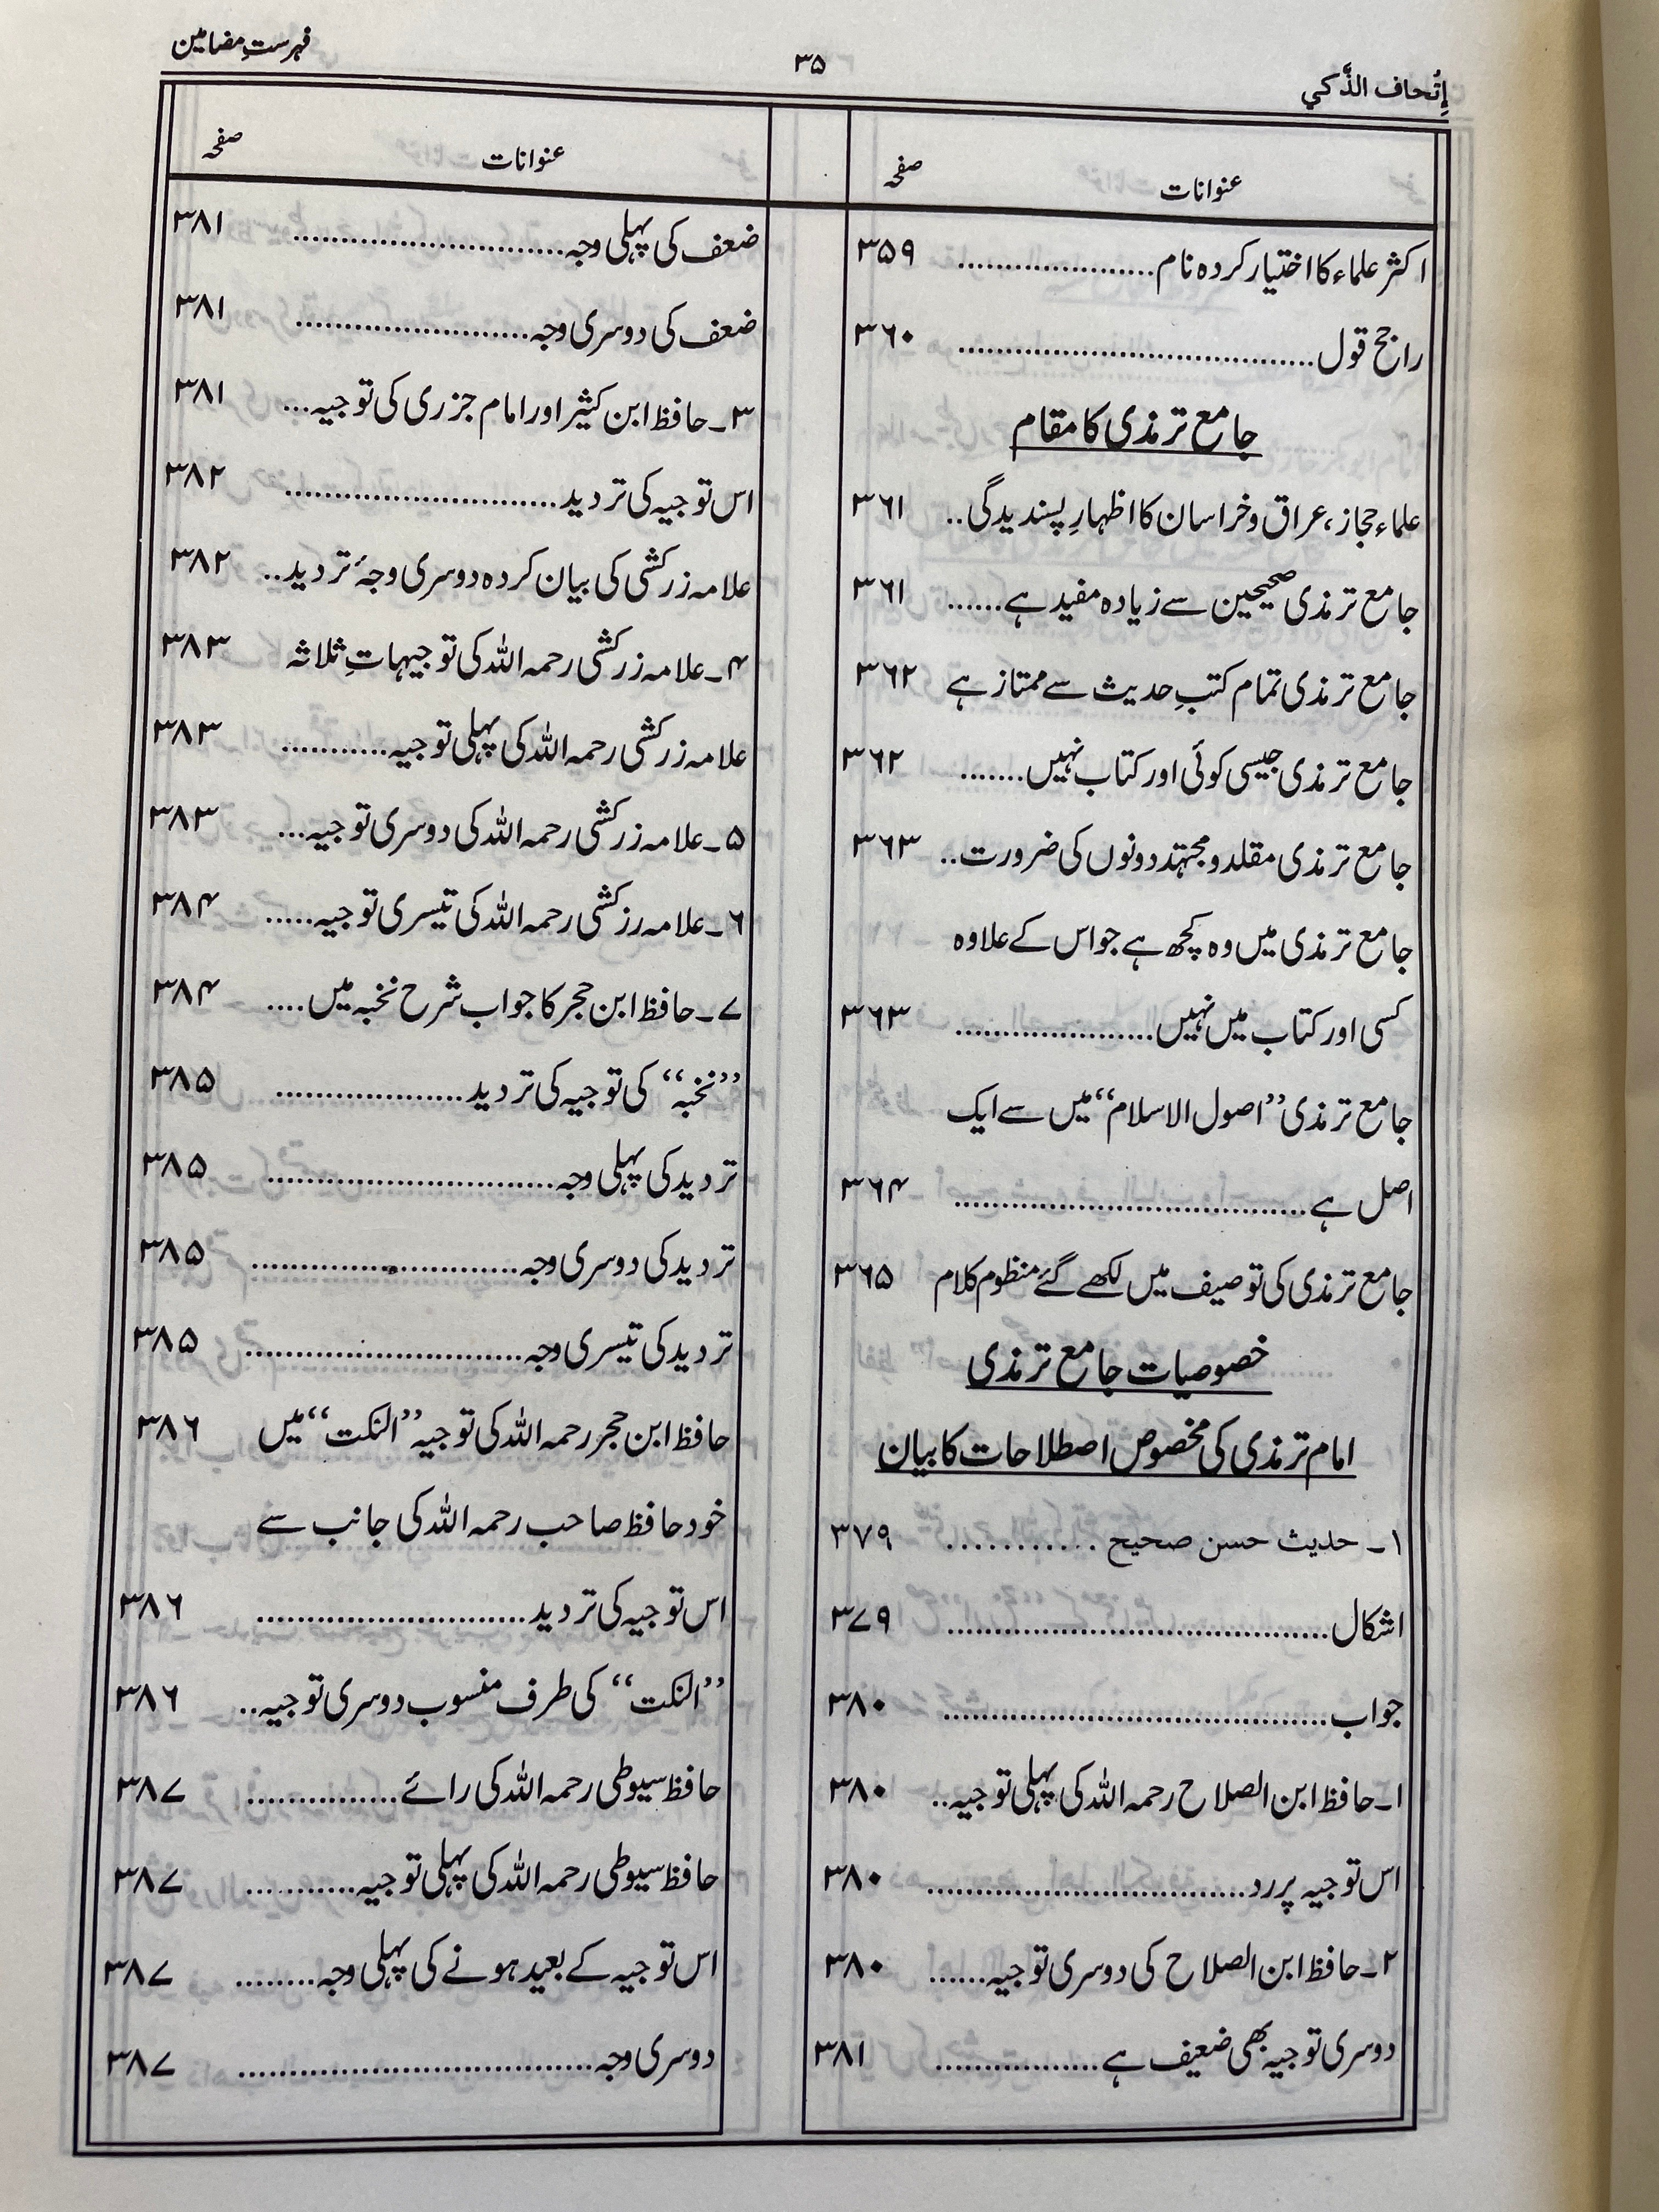 إتْحاف الذَّكي
۳۵
فہرستِ مضامین
عنوانات صفحہ
اکثر علماء کا اختیار کردہ نام..................... ۳۵۹
راجح قول..................................... ۳۶۰
جامع ترمذی کا مقام
علماء حجاز، عراق وخراسان کا اظہارِ پسندیدگی.. ۳۶۱
جامع ترمذی صحیحین سے زیادہ مفید ہے...... ۳۶۱
جامع ترمذی تمام کتبِ حدیث سے ممتاز ہے ۳۶۲
جامع ترمذی جیسی کوئی اور کتاب نہیں....... ۳۶۲
جامع ترمذی مقلد ومجتہد دونوں کی ضرورت.. ۳۶۳
جامع ترمذی میں وہ کچھ ہے جو اس کے علاوہ
کسی اور کتاب میں نہیں..................... ۳۶۳
جامع ترمذی ’’اصول الاسلام‘‘ میں سے ایک
اصل ہے..................................... ۳۶۴
جامع ترمذی کی توصیف میں لکھے گئے منظوم کلام ۳۶۵
خصوصیات جامع ترمذی
امام ترمذی کی مخصوص اصطلاحات کا بیان
۱۔ حدیث حسن صحیح ........... ۳۷۹
اشکال........................................ ۳۷۹
جواب........................................ ۳۸۰
۱۔حافظ ابن الصلاح رحمہ اللہ کی پہلی توجیہ.. ۳۸۰
اس توجیہ پر رد................................. ۳۸۰
۲۔حافظ ابن الصلاح کی دوسری توجیہ...... ۳۸۰
دوسری توجیہ بھی ضعیف ہے................. ۳۸۱
عنوانات صفحہ
ضعف کی پہلی وجہ............................ ۳۸۱
ضعف کی دوسری وجہ........................ ۳۸۱
۳۔حافظ ابن کثیر اور امام جزری کی توجیہ... ۳۸۱
اس توجیہ کی تردید............................ ۳۸۲
علامہ زرکشی کی بیان کردہ دوسری وجۂ تردید.. ۳۸۲
۴۔علامہ زرکشی رحمہ اللہ کی توجیہاتِ ثلاثہ ۳۸۳
علامہ زرکشی رحمہ اللہ کی پہلی توجیہ........... ۳۸۳
۵۔علامہ زرکشی رحمہ اللہ کی دوسری توجیہ... ۳۸۳
۶۔علامہ رزکشی رحمہ اللہ کی تیسری توجیہ..... ۳۸۴
۷۔حافظ ابن حجر کا جواب شرح نخبہ میں.... ۳۸۴
’’نخبہ‘‘ کی توجیہ کی تردید.................... ۳۸۵
تردید کی پہلی وجہ............................. ۳۸۵
تردید کی دوسری وجہ........................... ۳۸۵
تردید کی تیسری وجہ............................ ۳۸۵
حافظ ابن حجر رحمہ اللہ کی توجیہ ’’النکت‘‘ میں ۳۸۶
خود حافظ صاحب رحمہ اللہ کی جانب سے
اس توجیہ کی تردید............................ ۳۸۶
’’النکت‘‘ کی طرف منسوب دوسری توجیہ.. ۳۸۶
حافظ سیوطی رحمہ اللہ کی رائے................ ۳۸۷
حافظ سیوطی رحمہ اللہ کی پہلی توجیہ........... ۳۸۷
اس توجیہ کے بعید ہونے کی پہلی وجہ........ ۳۸۷
دوسری وجہ.................................... ۳۸۷